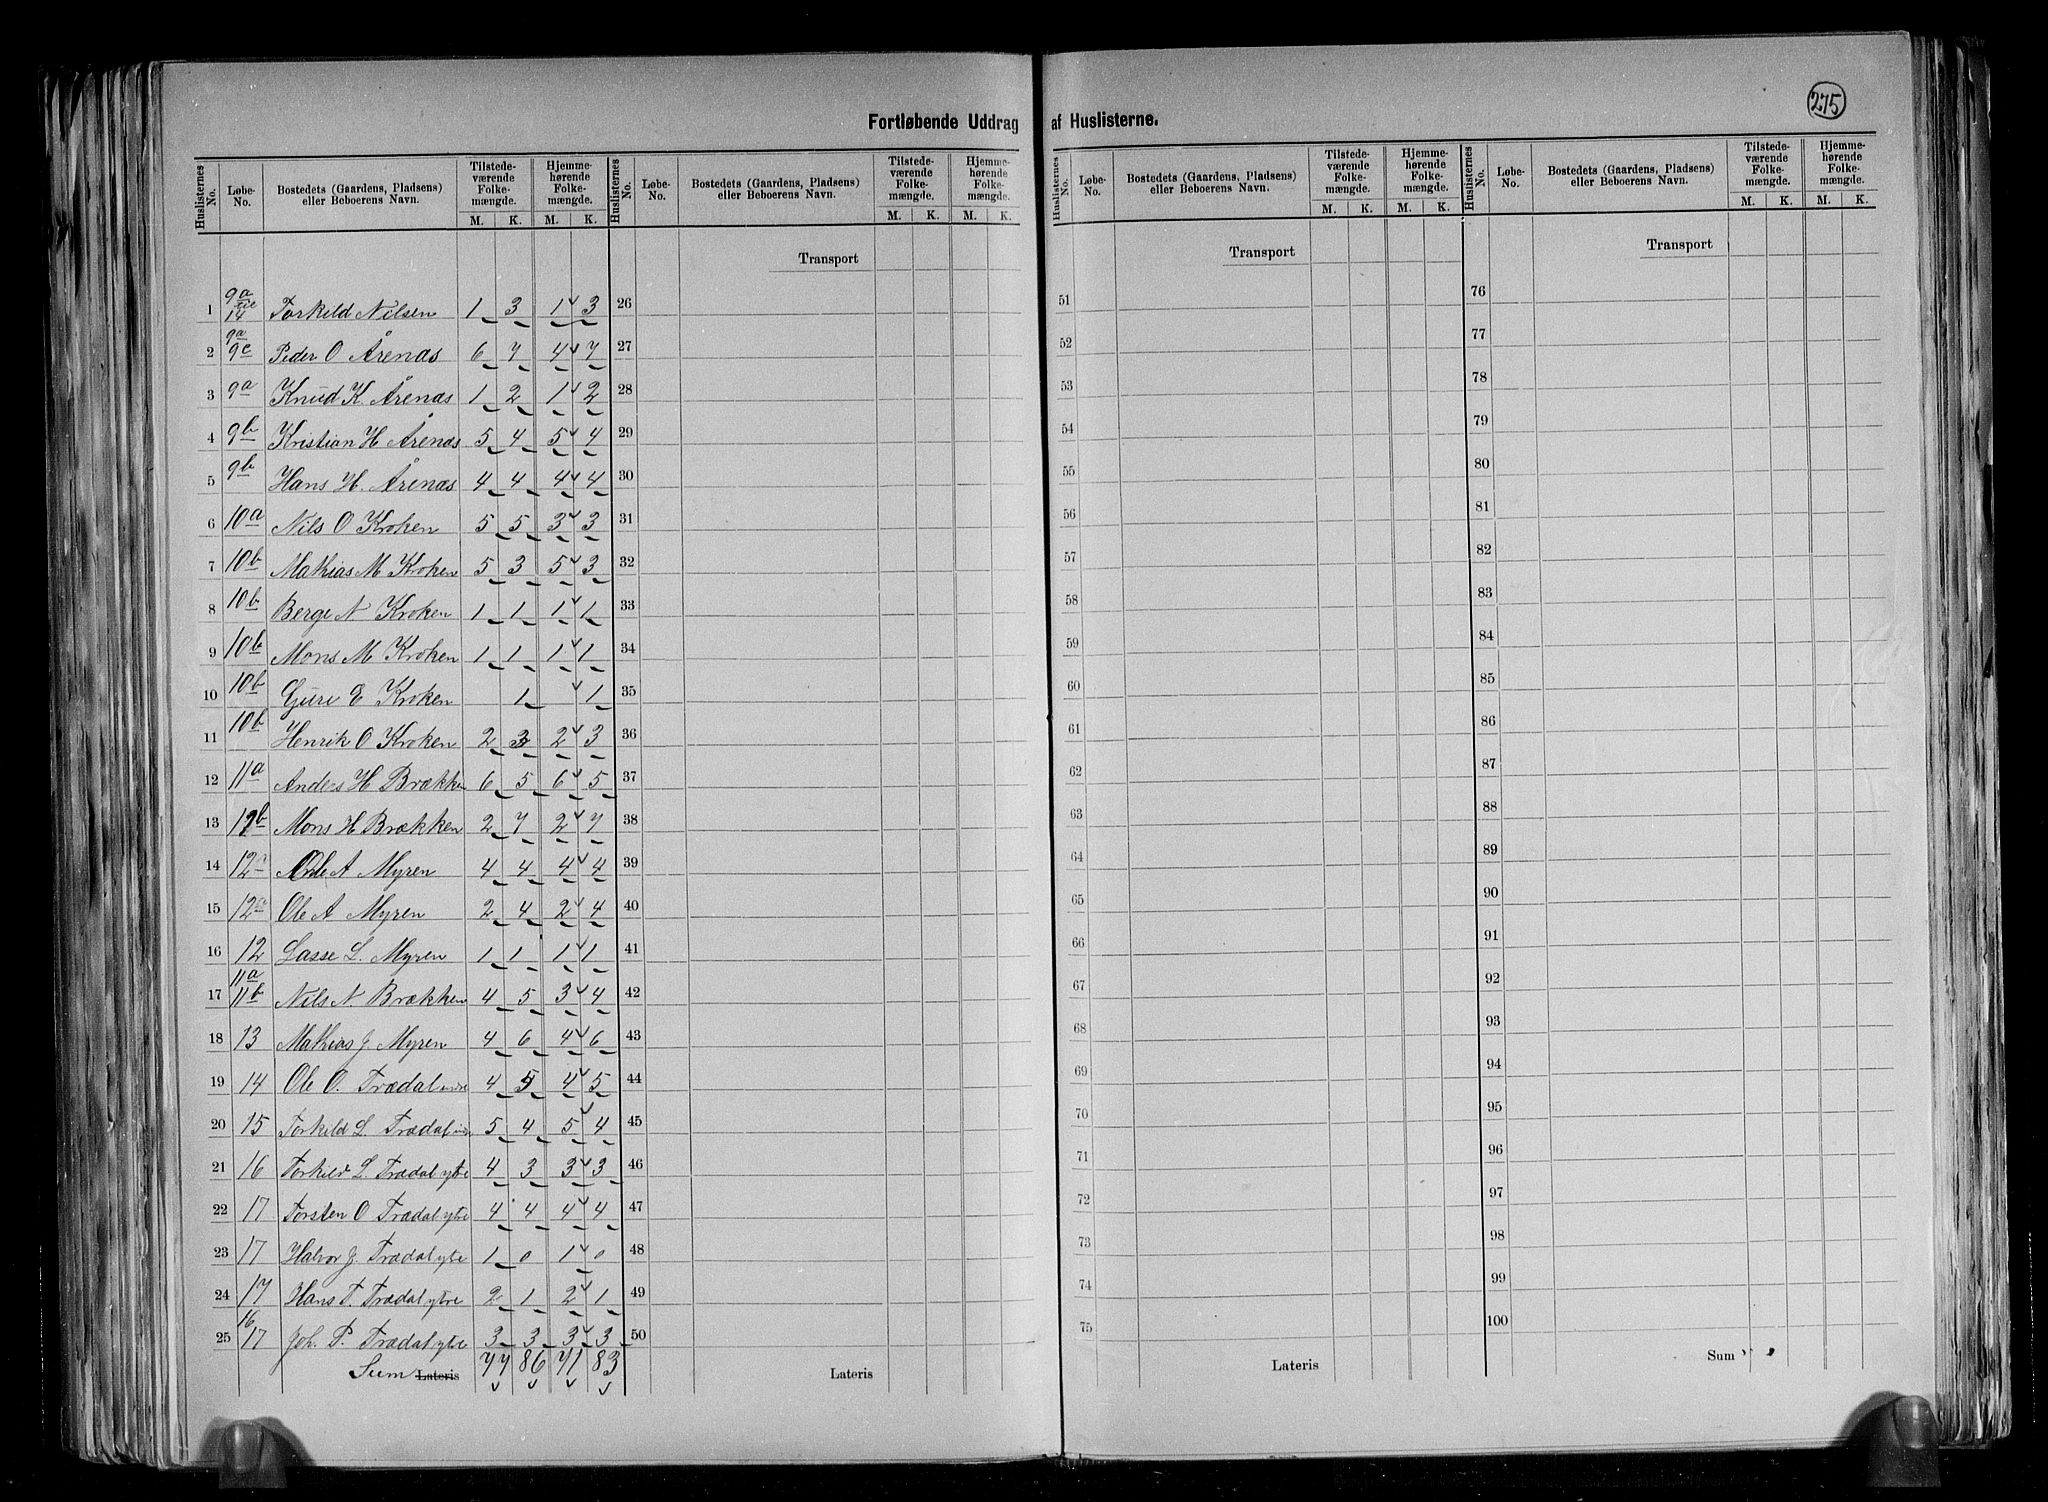 275
Fortløbende Uddrag af Huslisterne.
Huslisternes No. Løbe-No. Bostedets (Gaardens, Pladsens) eller Beboerens Navn. Tilstedeværende Folkemængde. M. K. Hjemmehørende Folkemængde. M. K.
Huslisternes No. Løbe-No. Bostedets (Gaardens, Pladsens) eller Beboerens Navn. Tilstedeværende Folkemængde. M. K. Hjemmehørende Folkemængde. M. K.
Huslisternes No. Løbe-No. Bostedets (Gaardens, Pladsens) eller Beboerens Navn. Tilstedeværende Folkemængde. M. K. Hjemmehørende Folkemængde. M. K.
Huslisternes No. Løbe-No. Bostedets (Gaardens, Pladsens) eller Beboerens Navn. Tilstedeværende Folkemængde. M. K. Hjemmehørende Folkemængde. M. K.
Transport Transport Transport
1 9a 14 Torkild Nilsen 1 3 1 3 26 51 76
2 9a 9c Peder O Årenæs 6 7 4 7 27 52 77
3 9a Knud K. Årenæs 1 2 1 2 28 53 78
4 9b Kristian H Årenæs 5 4 5 4 29 54 79
5 9b Hans H. Årenæs 4 4 4 4 30 55 80
6 10a Nils O Kroken 5 5 3 3 31 56 81
7 10b Mathias M Kroken 5 3 5 3 32 57 82
8 10b Berge N Kroken 1 1 1 1 33 58 83
9 10b Mons M Kroken 1 1 1 1 34 59 84
10 10b Guri E Kroken 1 1 35 60 85
11 10b Henrik O Kroken 2 3 2 3 36 61 86
12 11a Anders H Brækken 6 5 6 5 37 62 87
13 11b Mons H Brækken 2 7 2 7 38 63 88
14 12a A Myren 4 4 4 4 39 64 89
15 12a Ole A Myren 2 4 2 4 40 65 90
16 12 Lasse L. Myren 1 1 1 1 41 66 91
17 11a 11b Nils N Brækken 4 5 3 4 42 67 92
18 13 Mathias J. Myren 4 6 4 6 43 68 93
19 14 Ole O. Trædal indre 4 5 4 5 44 69 94
20 15 Torkild L. Trædal 5 4 5 4 45 70 95
21 16 Torkild L. Trædal ytre 4 3 3 3 46 71 96
22 17 Torsten O Trædal ytre 4 4 4 4 47 72 97
23 17 Halvor J. Trædal ytre 1 0 1 0 48 73 98
24 17 Hans T. Trædal ytre 2 1 2 1 49 74 99
25 16 17 Joh. P. Trædal ytre 3 3 3 3 50 75 100
Sum Lateris 77 86 71 83 Lateris Lateris Sum